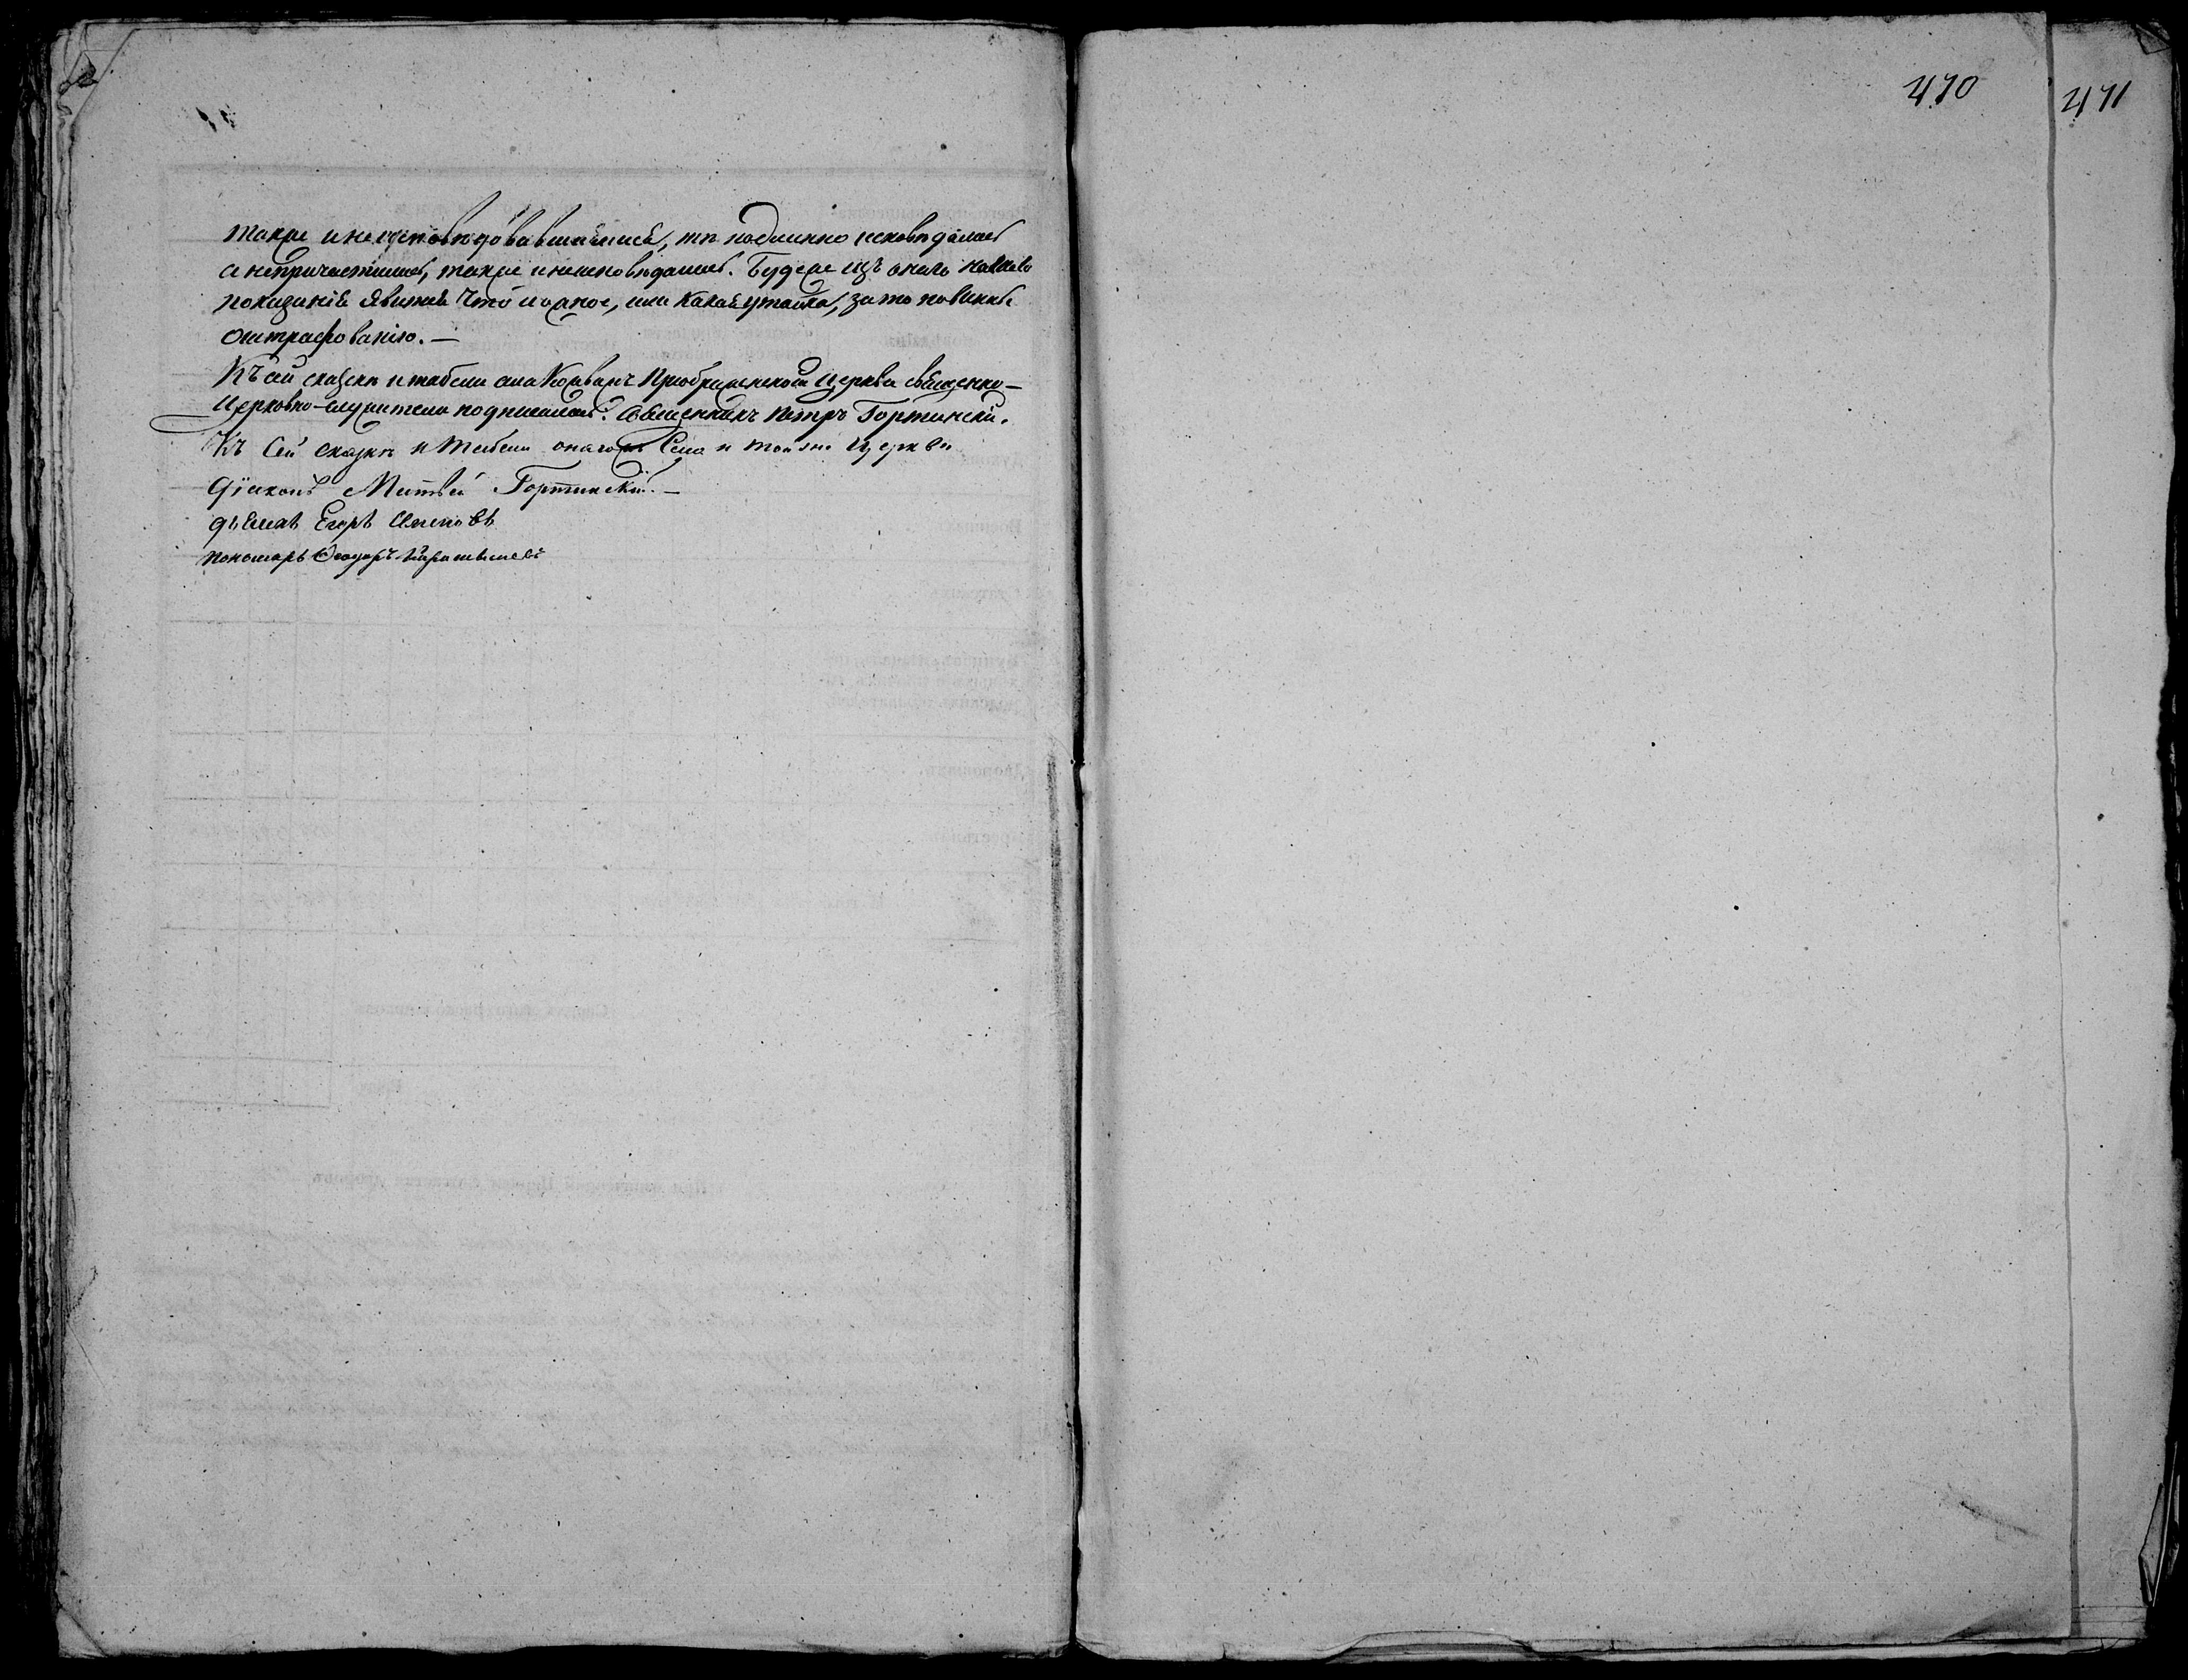 470
471
также и неисповѣдовавшимися, тѣ подлинно исповѣдались
и непричастились, также и неисповѣдались. Будеже изъ онаго нашего
показанія явится что ложное, или какая утайка, за то повинны
оштрафованію. —
Къ сей сказкѣ и табели села Преображенской Церкви Священно-
Церковно-служители подписались: Священникъ Петръ Гортинскій.
Къ Сей сказкѣ и Табели онагожъ Села и тояже Церкви
Діаконъ Матвѣй Гортинскій. —
дьячекъ Егоръ
пономарь Ѳеодоръ